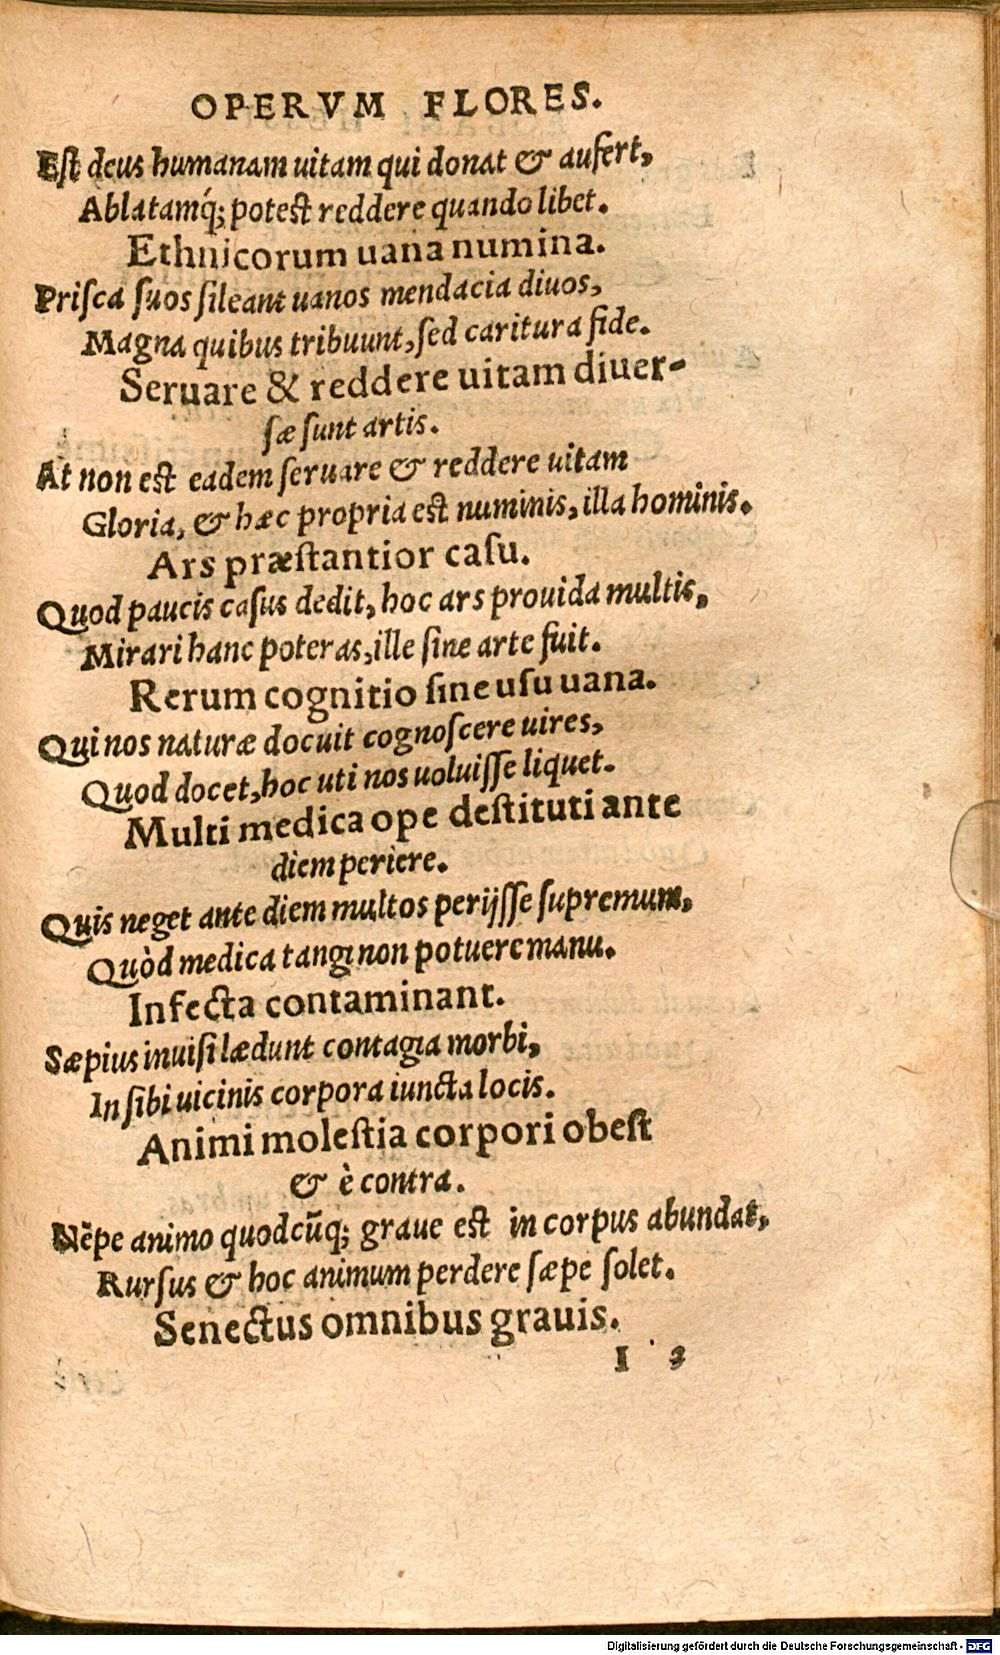 OPERVM FLORES.
Eſt deus humanam uitam qui donat & aufert,
Ablatamq́; poteſt reddere quando libet.
Ethnicorum uana numina.
Priſca ſuos ſileant uanos mendacia diuos,
Magna quibus tribuunt, ſed caritura fide.
Seruare & reddere uitam diuer-
ſæ ſunt artis.
At non eſt eadem ſeruare & reddere uitam
Gloria, & hæc propria eſt numinis, illa hominis.
Ars præſtantior caſu.
Quod paucis caſus dedit, hoc ars prouida multis,
Mirari hanc poteras, ille ſine arte fuit.
Rerum cognitio ſine uſu uana.
Qui nos naturæ docuit cognoſcere uires,
Quod docet, hoc uti nos uoluiſſe liquet.
Multi medica ope deſtituti ante
diem periere.
Quis neget ante diem multos perijſſe ſupremum,
Quòd medica tangi non potuere manu.
Infecta contaminant.
Sæpius inuiſi lædunt contagia morbi,
In ſibi uicinis corpora iuncta locis.
Animi moleſtia corpori obeſt
& è contra.
Nẽpe animo quodcũq; graue eſt in corpus abundat,
Rurſus & hoc animum perdere ſæpe ſolet.
Senectus omnibus grauis.
I 3
Digitalisierung gefördert durch die Deutsche Forschungsgemeinschaft - DFG